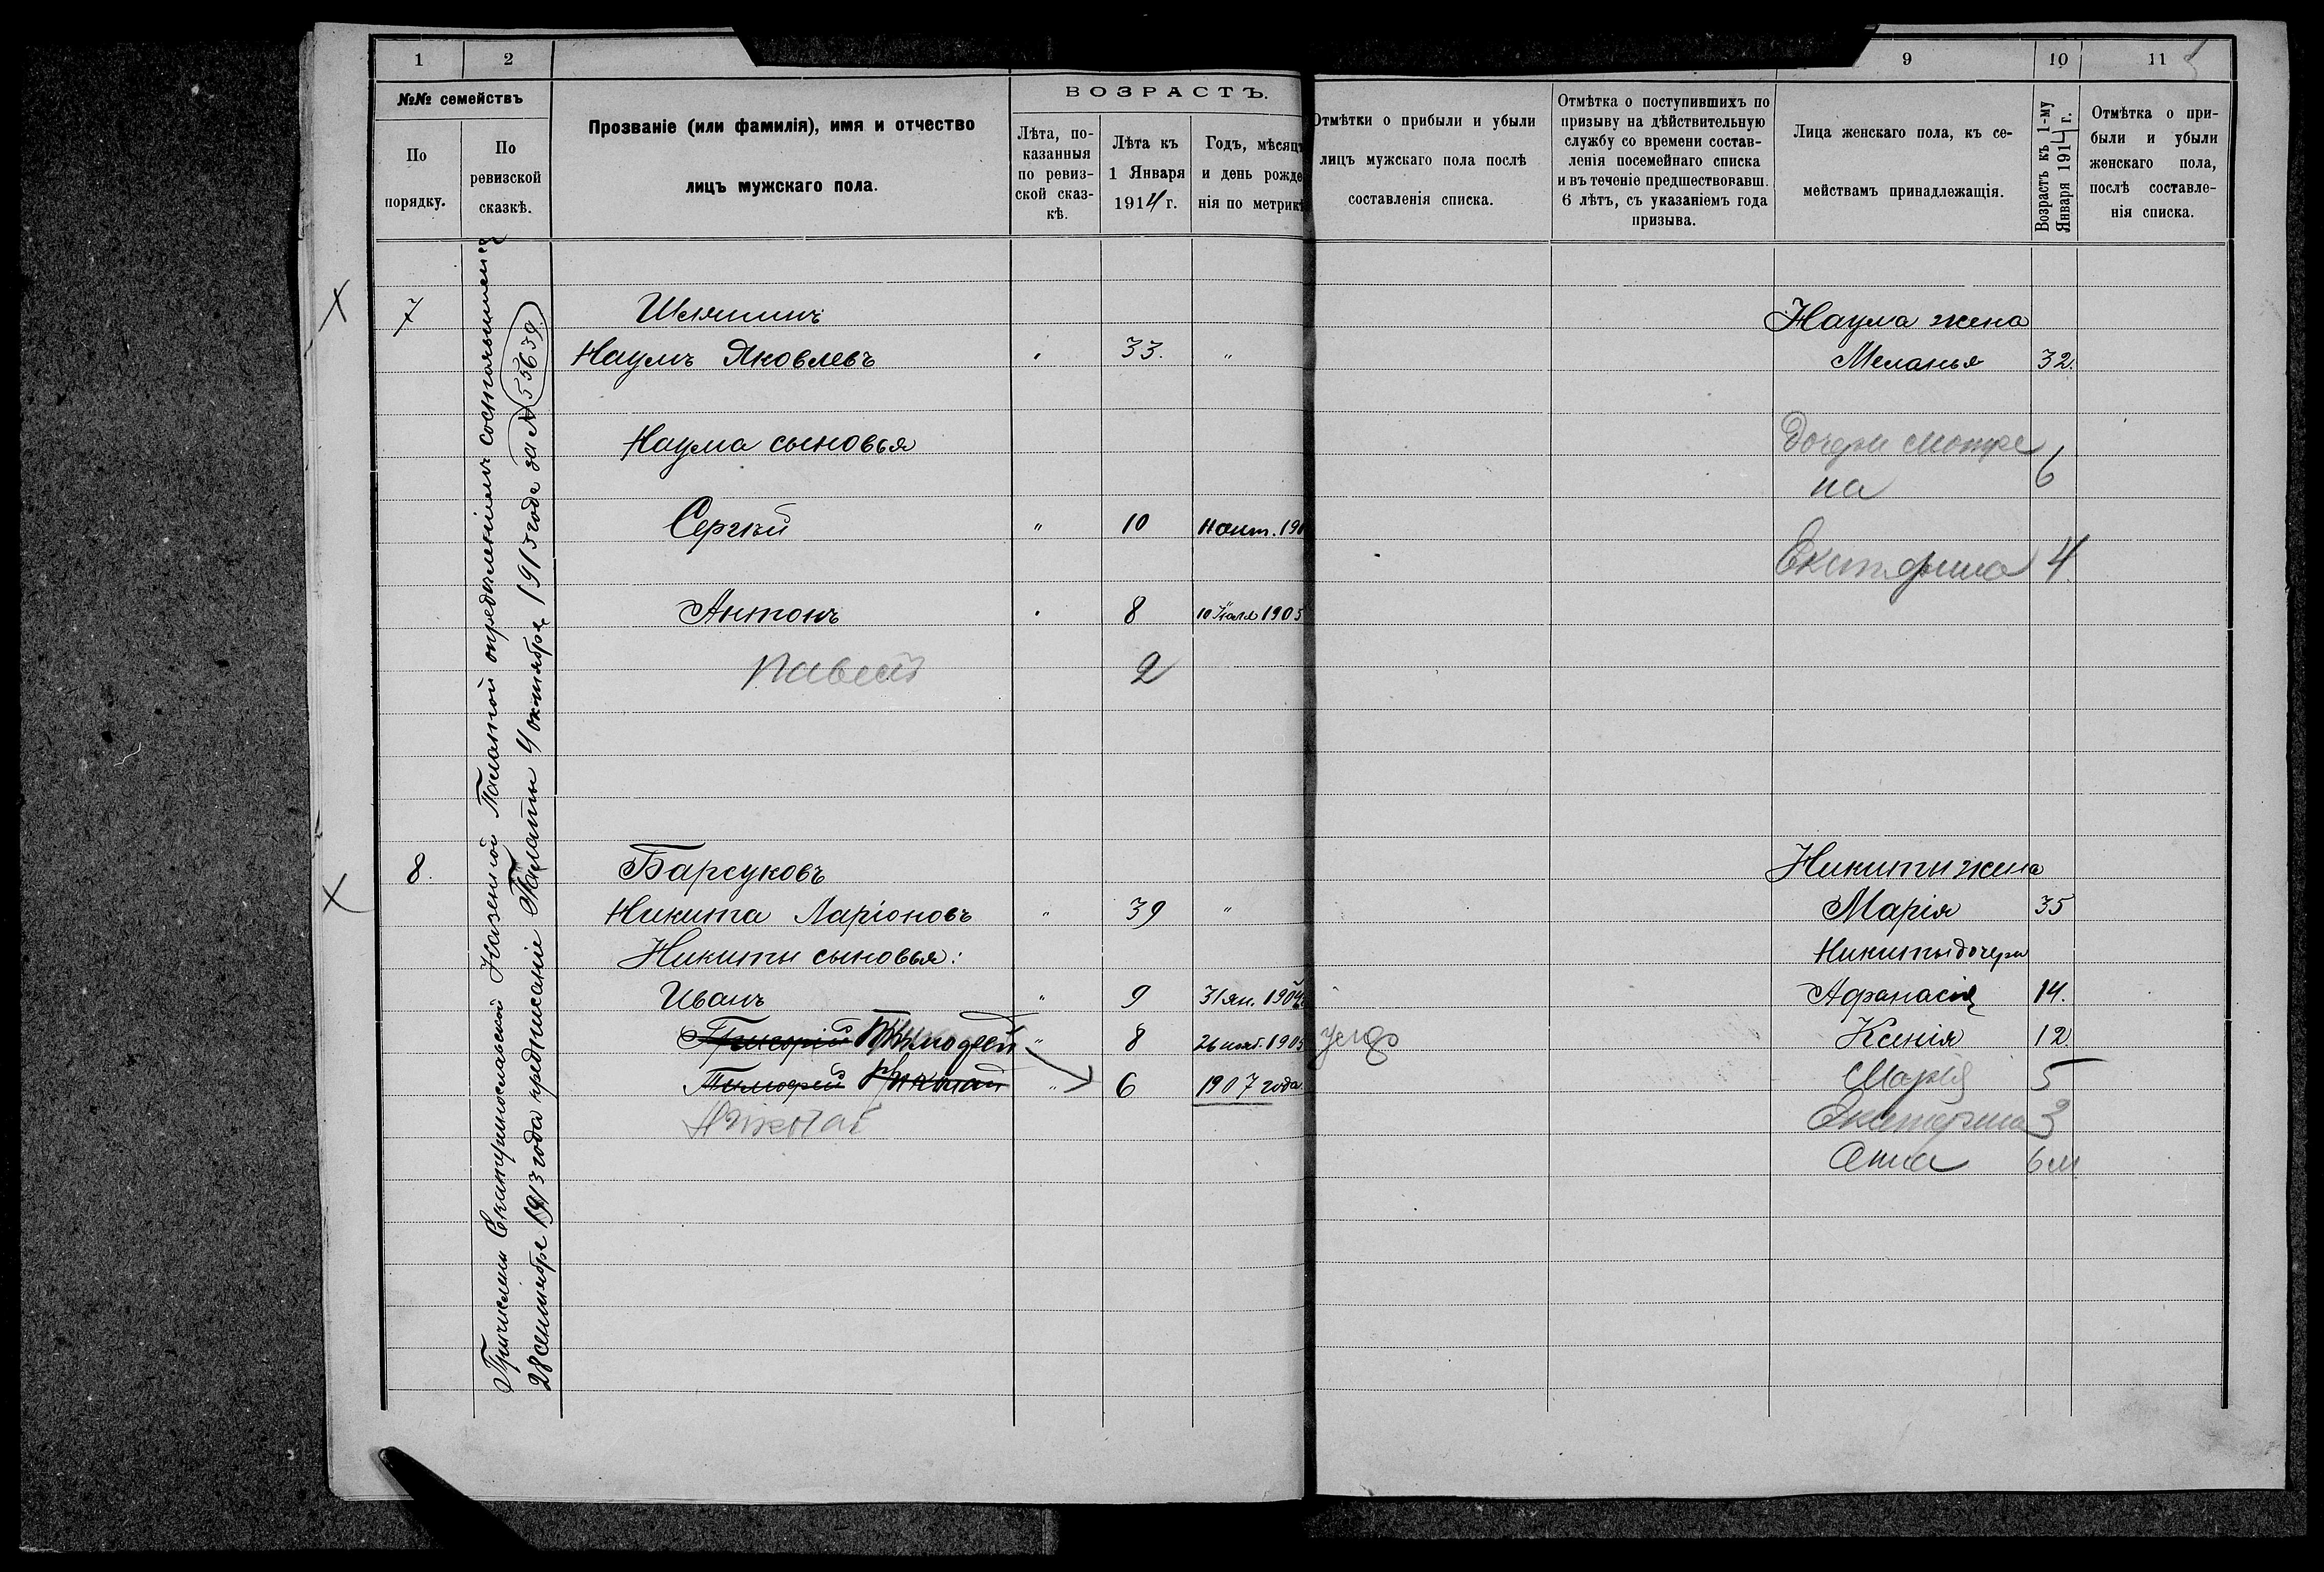 1
2
№№ семействъ
По порядку.
По ревизской сказкѣ.
Прозваніе (или фамилія), имя и отчество
лицъ мужскаго пола.
ВОЗРАСТЪ.
Лѣта, по-
казанныя
по ревиз-
ской сказ-
кѣ.
Лѣта къ
1 Января
1914 г.
Годъ, мѣсяцъ
и день рожде
нія по метрикѣ
Причислены Екатеринославской Казенной Палатой опредѣленіемъ состоявшимся
28 сентября 1913 года предписаніе Палаты 4 октября 1913 года за № 55639
7
Наумъ Яковлевъ " 33. "
Наума сыновья
Сергѣй " 10
Антонъ " 8 10 Іюля 1905
Павелъ 2
8.
Барсуковъ
Никита Ларіоновъ " 39 "
Никиты сыновья:
Иванъ " 9 31 ян. 1904
Григорій Тимофей " 8 26 нояб. 1905
Тимофей Николай " 6 1907 года
Николай
9
10
11
Отмѣтки о прибыли и убыли
лицъ мужскаго пола послѣ
составленія списка.
Отмѣтка о поступившихъ по
призыву на дѣйствительную
службу со времени состав-
ленія посемейнаго списка
и въ теченіе предшествовавш.
6 лѣтъ, съ указаніемъ года
призыва.
Лица женскаго пола, къ се-
мействамъ принадлежащія.
Возрастъ къ 1-му
Января 1914 г.
Отмѣтка о при-
были и убыли
женскаго пола,
послѣ составле-
нія списка.
Наума жена
Меланья 32.
Дочери Мотре
на 6
Екатерина 4.
Никиты жена
Марія 35
Никиты дочери
Афанасія 14.
Ксенія 12
Марія 5
Екатерина 3
Анна 6 м